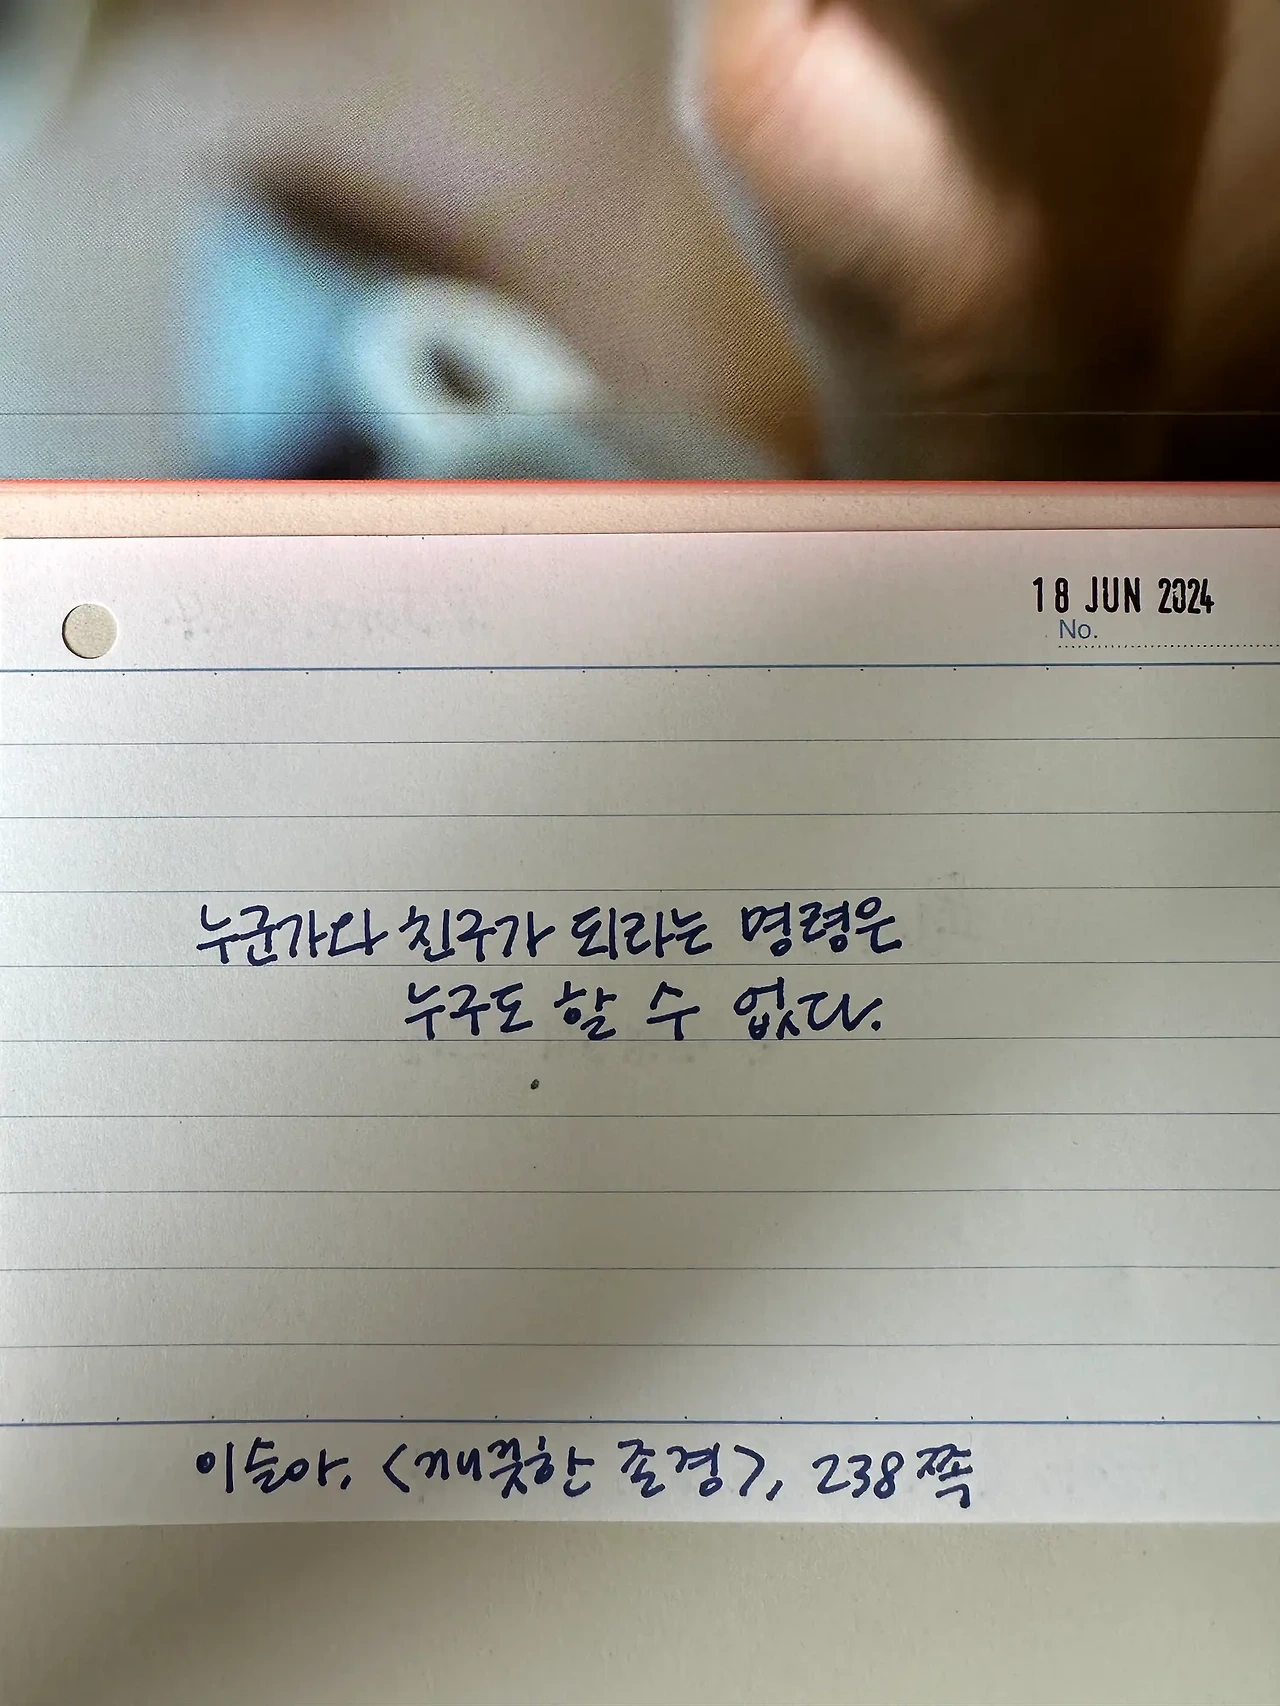 18 JUN 2024
No.
누군가와 친구가 되라는 명령은
누구도 할 수 없다.
이슬아, <깨끗한 존경>, 238쪽